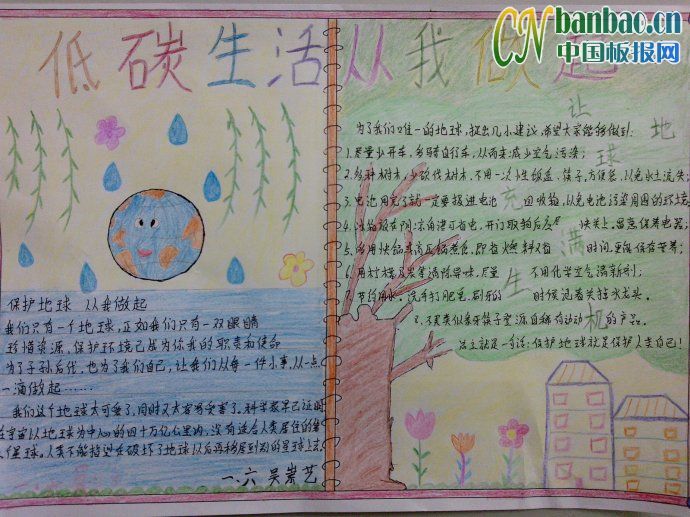 CN banbao.cn
中国板报网
低碳生活 从我做起
保护地球 从我做起
我们只有一个地球,正如我们只有一双眼睛
珍惜资源,保护环境已成为你我的职责和使命
为了子孙后代,也为了我们自己,让我们从每一件小事,从一点
一滴做起……
我们这个地球太可爱了,同时又太容易受害了,科学家早已证明
至少以地球为中心的四十万亿公里内,没有适合人类居住的第
二个星球。人类不能指望在破坏了地球以后再移居到别的星球上去。
一、六 吴紫艺
让地球充满生机
为了我们唯一的地球,提出几小建议,希望大家能够做到:
1.尽量少开车,多骑自行车,从而来减少空气污染;
2.多种树木,少砍伐树木,不用一次性饭盒、筷子,方便袋,以免水土流失;
3.电池用完了就一定要投进电池回收箱,以免电池污染周围的环境
4.冰箱放在阴凉角落可省电,开门取物后应快关上,留意保养电器;
5.多用快锅或高压锅煮食,即省燃料又省时间,更能保存营养;
6.用柠檬及果香消除异味,尽量不用化学空气清新剂;
7.节约用水。洗手打肥皂、刷牙的时候记着关掉水龙头。
的产品。
这主就是一句话:保护地球就是保护人类自己!